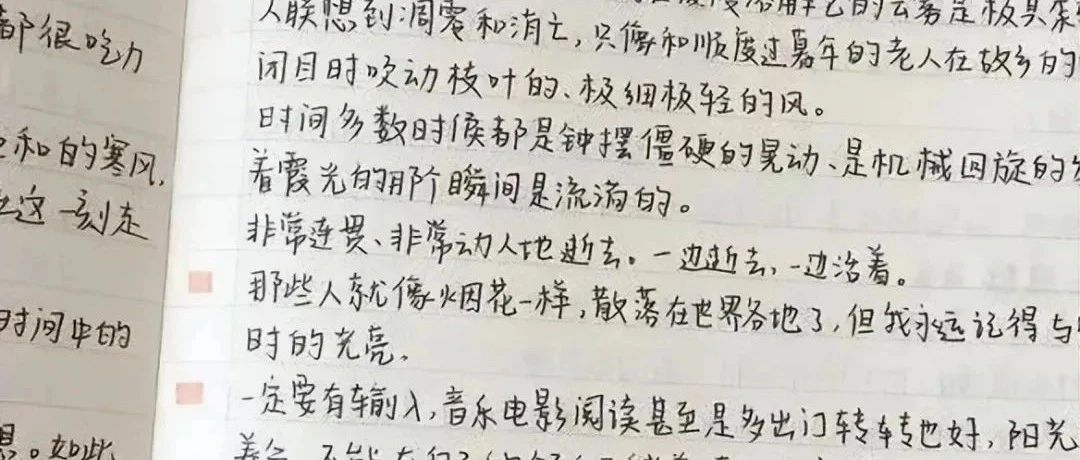 都很吃力
和的寒风,
这一刻走
时间中的
。如此
人联想到凋零和消亡,只像和顺度过暮年的老人在故乡的
闭目时吹动枝叶的、极细极轻的风。
时间多数时候都是钟摆僵硬的晃动、是机械回旋的
着霞光的那个瞬间是流淌的。
非常连贯、非常动人地逝去。一边逝去,一边活着。
那些人就像烟花一样,散落在世界各地了,但我永远记得与
时的光亮。
一定要有输入,音乐电影阅读甚至是多出门转转也好,阳光